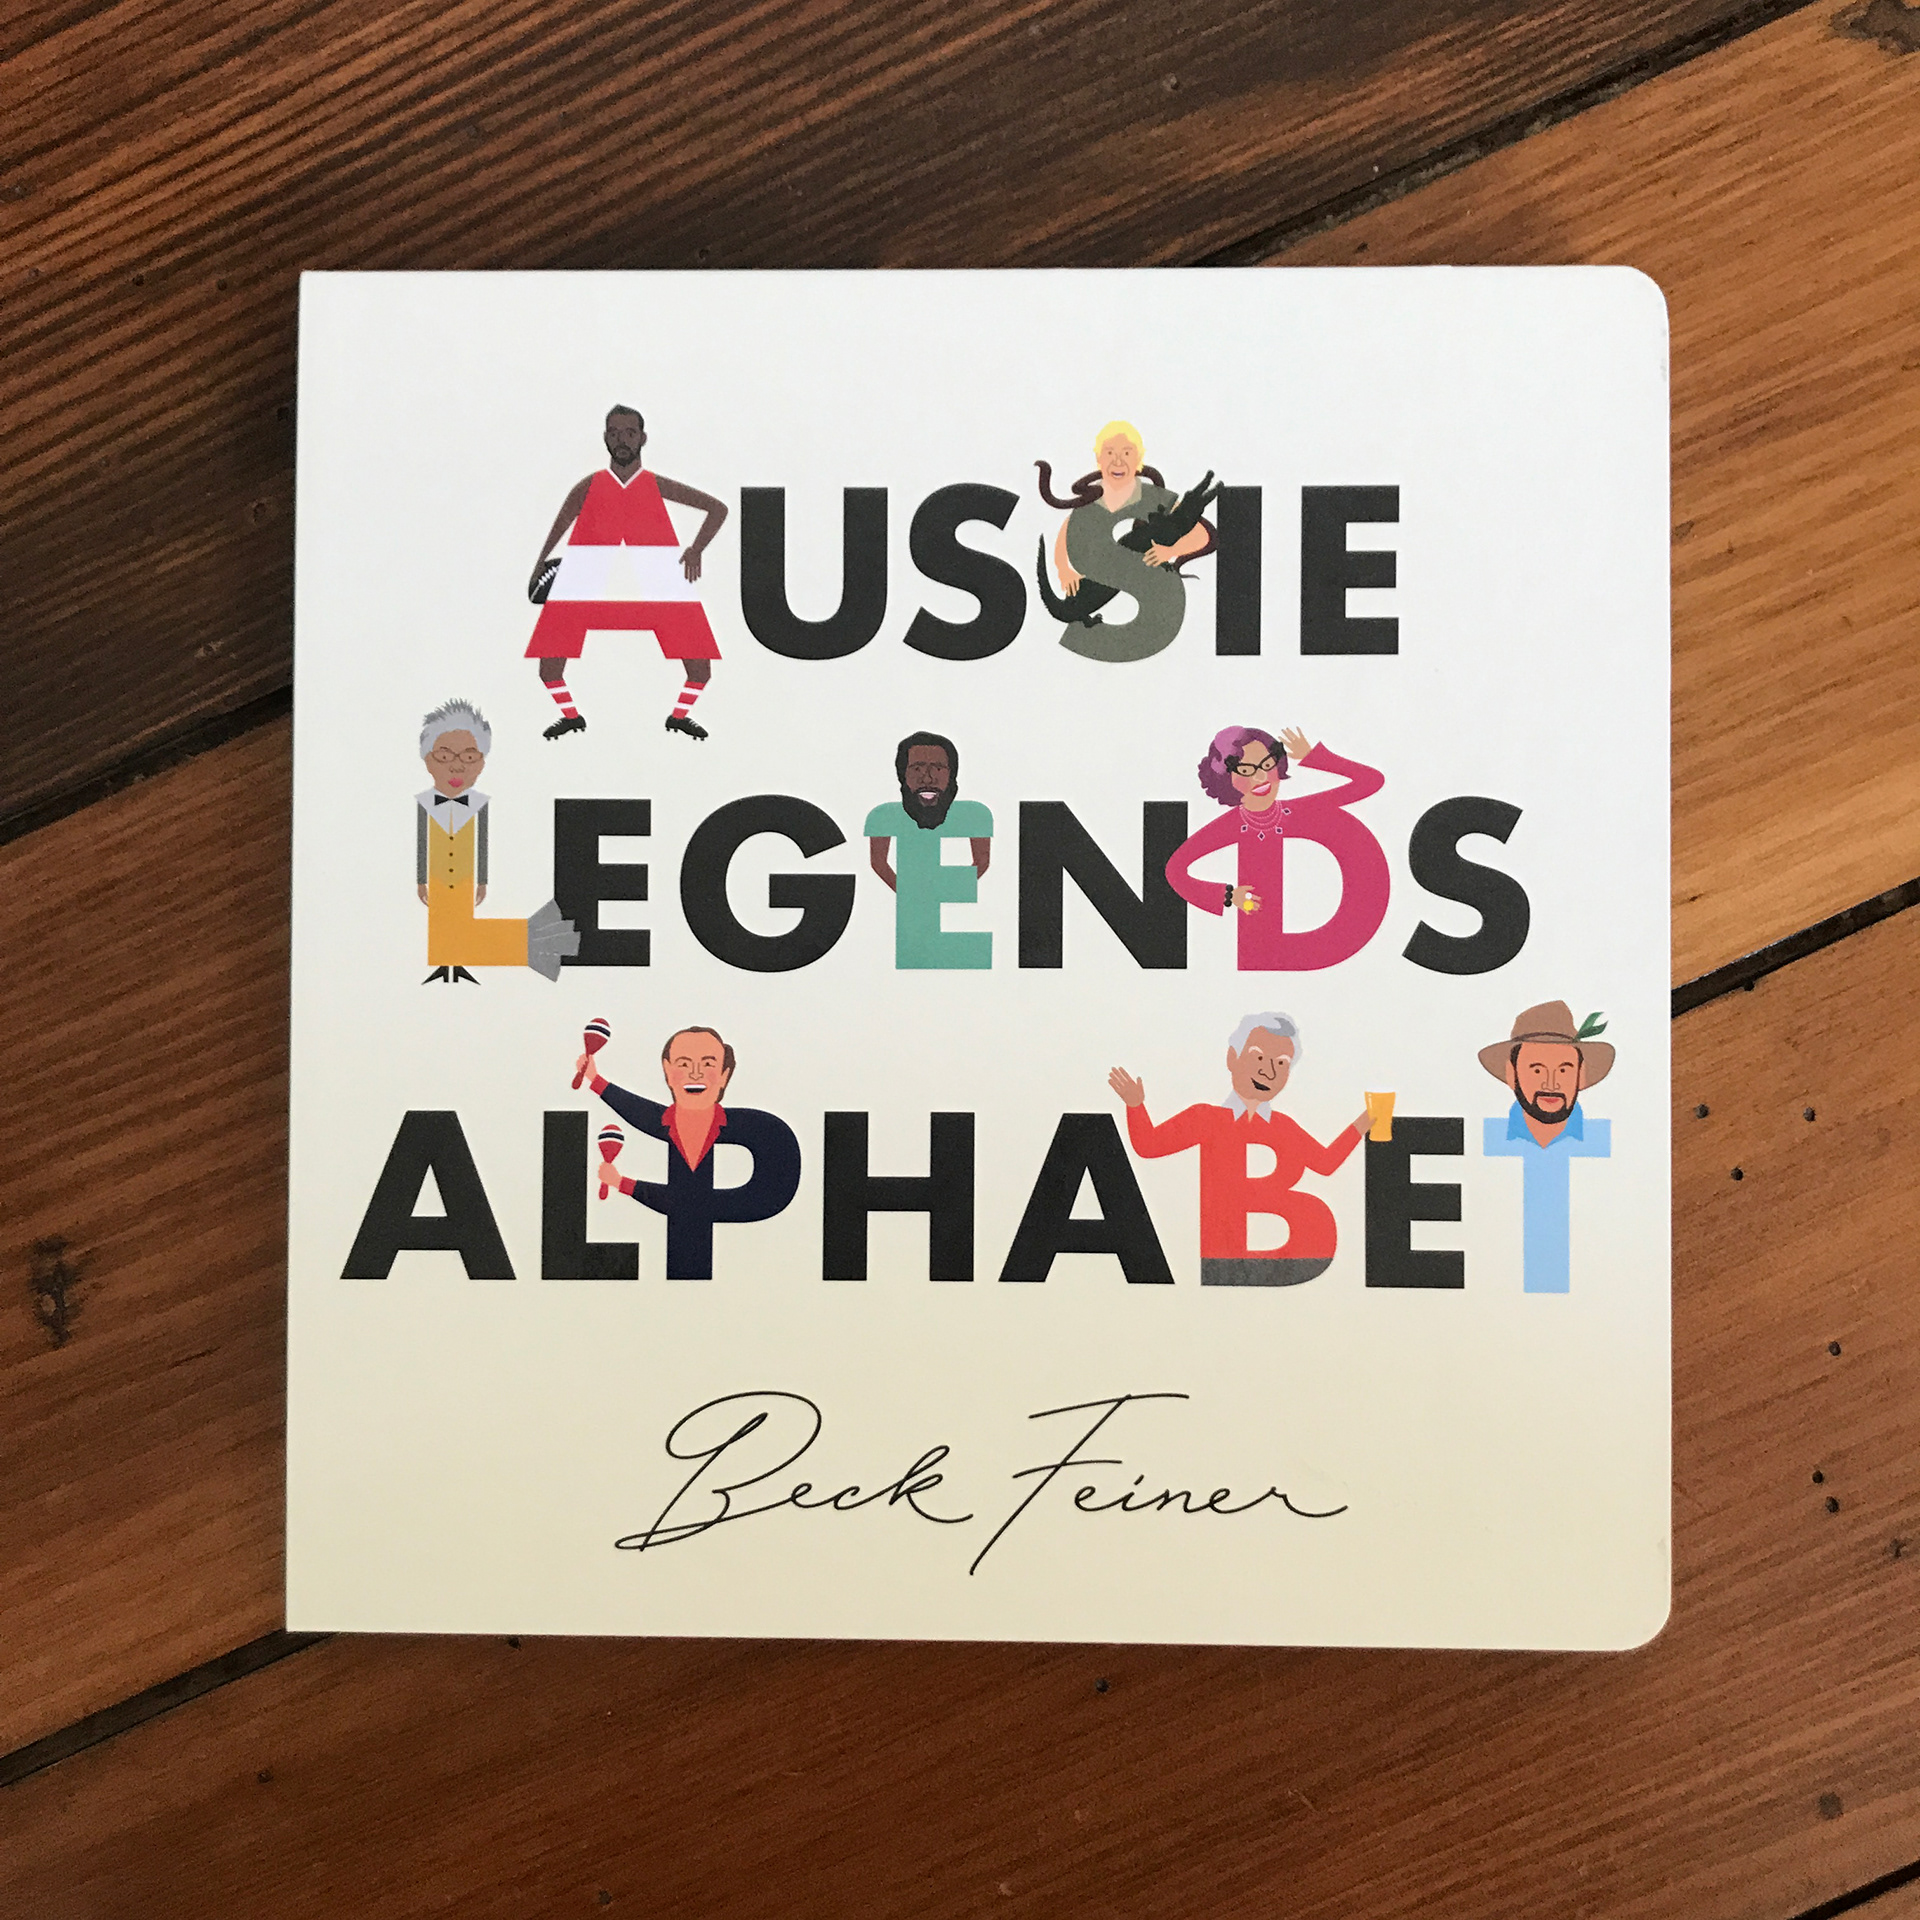 AUSSIE
LEGENDS
ALPHABET
Beck Feiner